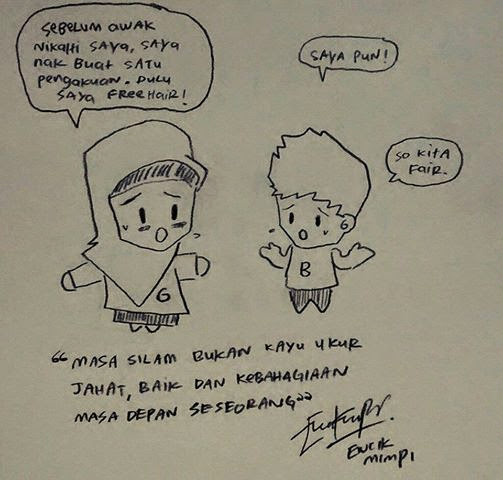 SEBELUM AWAK
NIKAHI SAYA, SAYA
NAK BUAT SATU
PENGAKUAN. DULU
SAYA FREEHAIR!
SAYA PUN!
SO KITA
FAIR.
G
B
"MASA SILAM BUKAN KAYU UKUR
JAHAT, BAIK DAN KEBAHAGIAAN
MASA DEPAN SESEORANG"
ENCIK
MIMPI